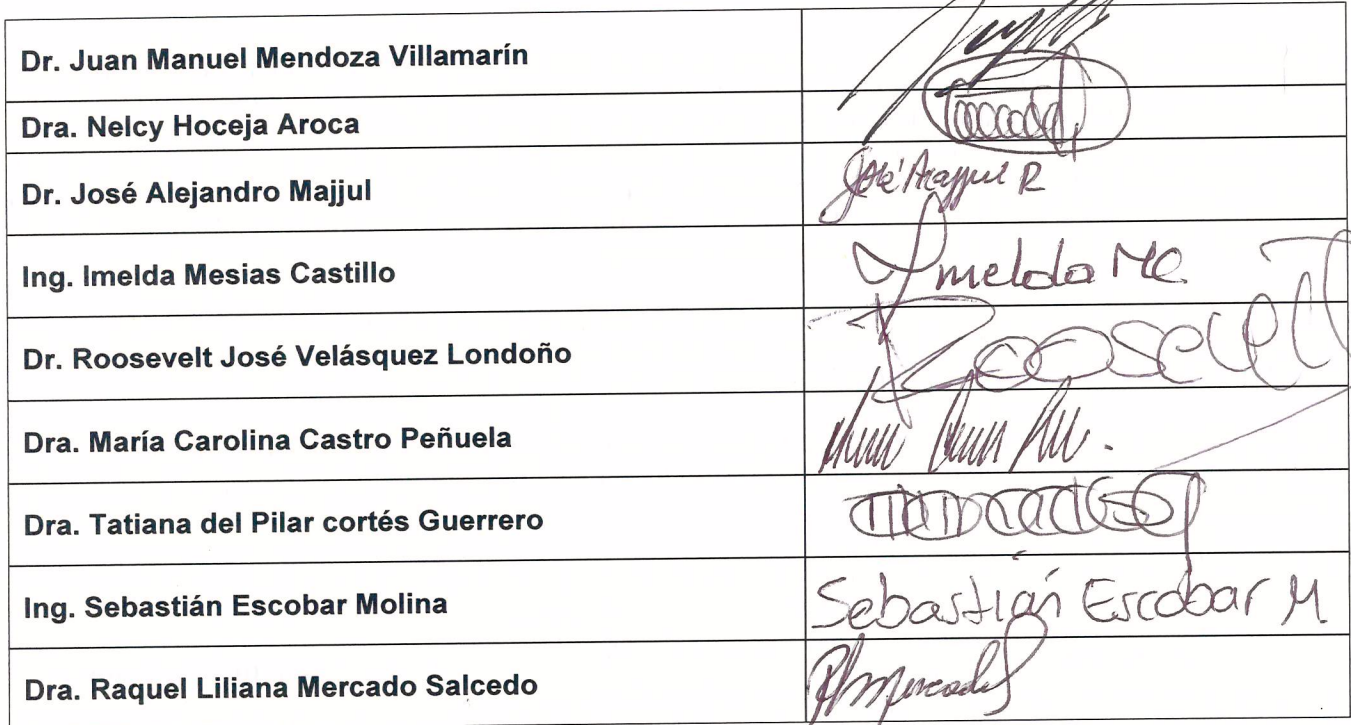 Dr. Juan Manuel Mendoza Villamarín
Dra. Nelcy Hoceja Aroca
Dr. José Alejandro Majjul
José Majjul R
Ing. Imelda Mesias Castillo
Imelda MC
Dr. Roosevelt José Velásquez Londoño
Roosevelt
Dra. María Carolina Castro Peñuela
Dra. Tatiana del Pilar cortés Guerrero
Ing. Sebastián Escobar Molina
Sebastián Escobar M
Dra. Raquel Liliana Mercado Salcedo